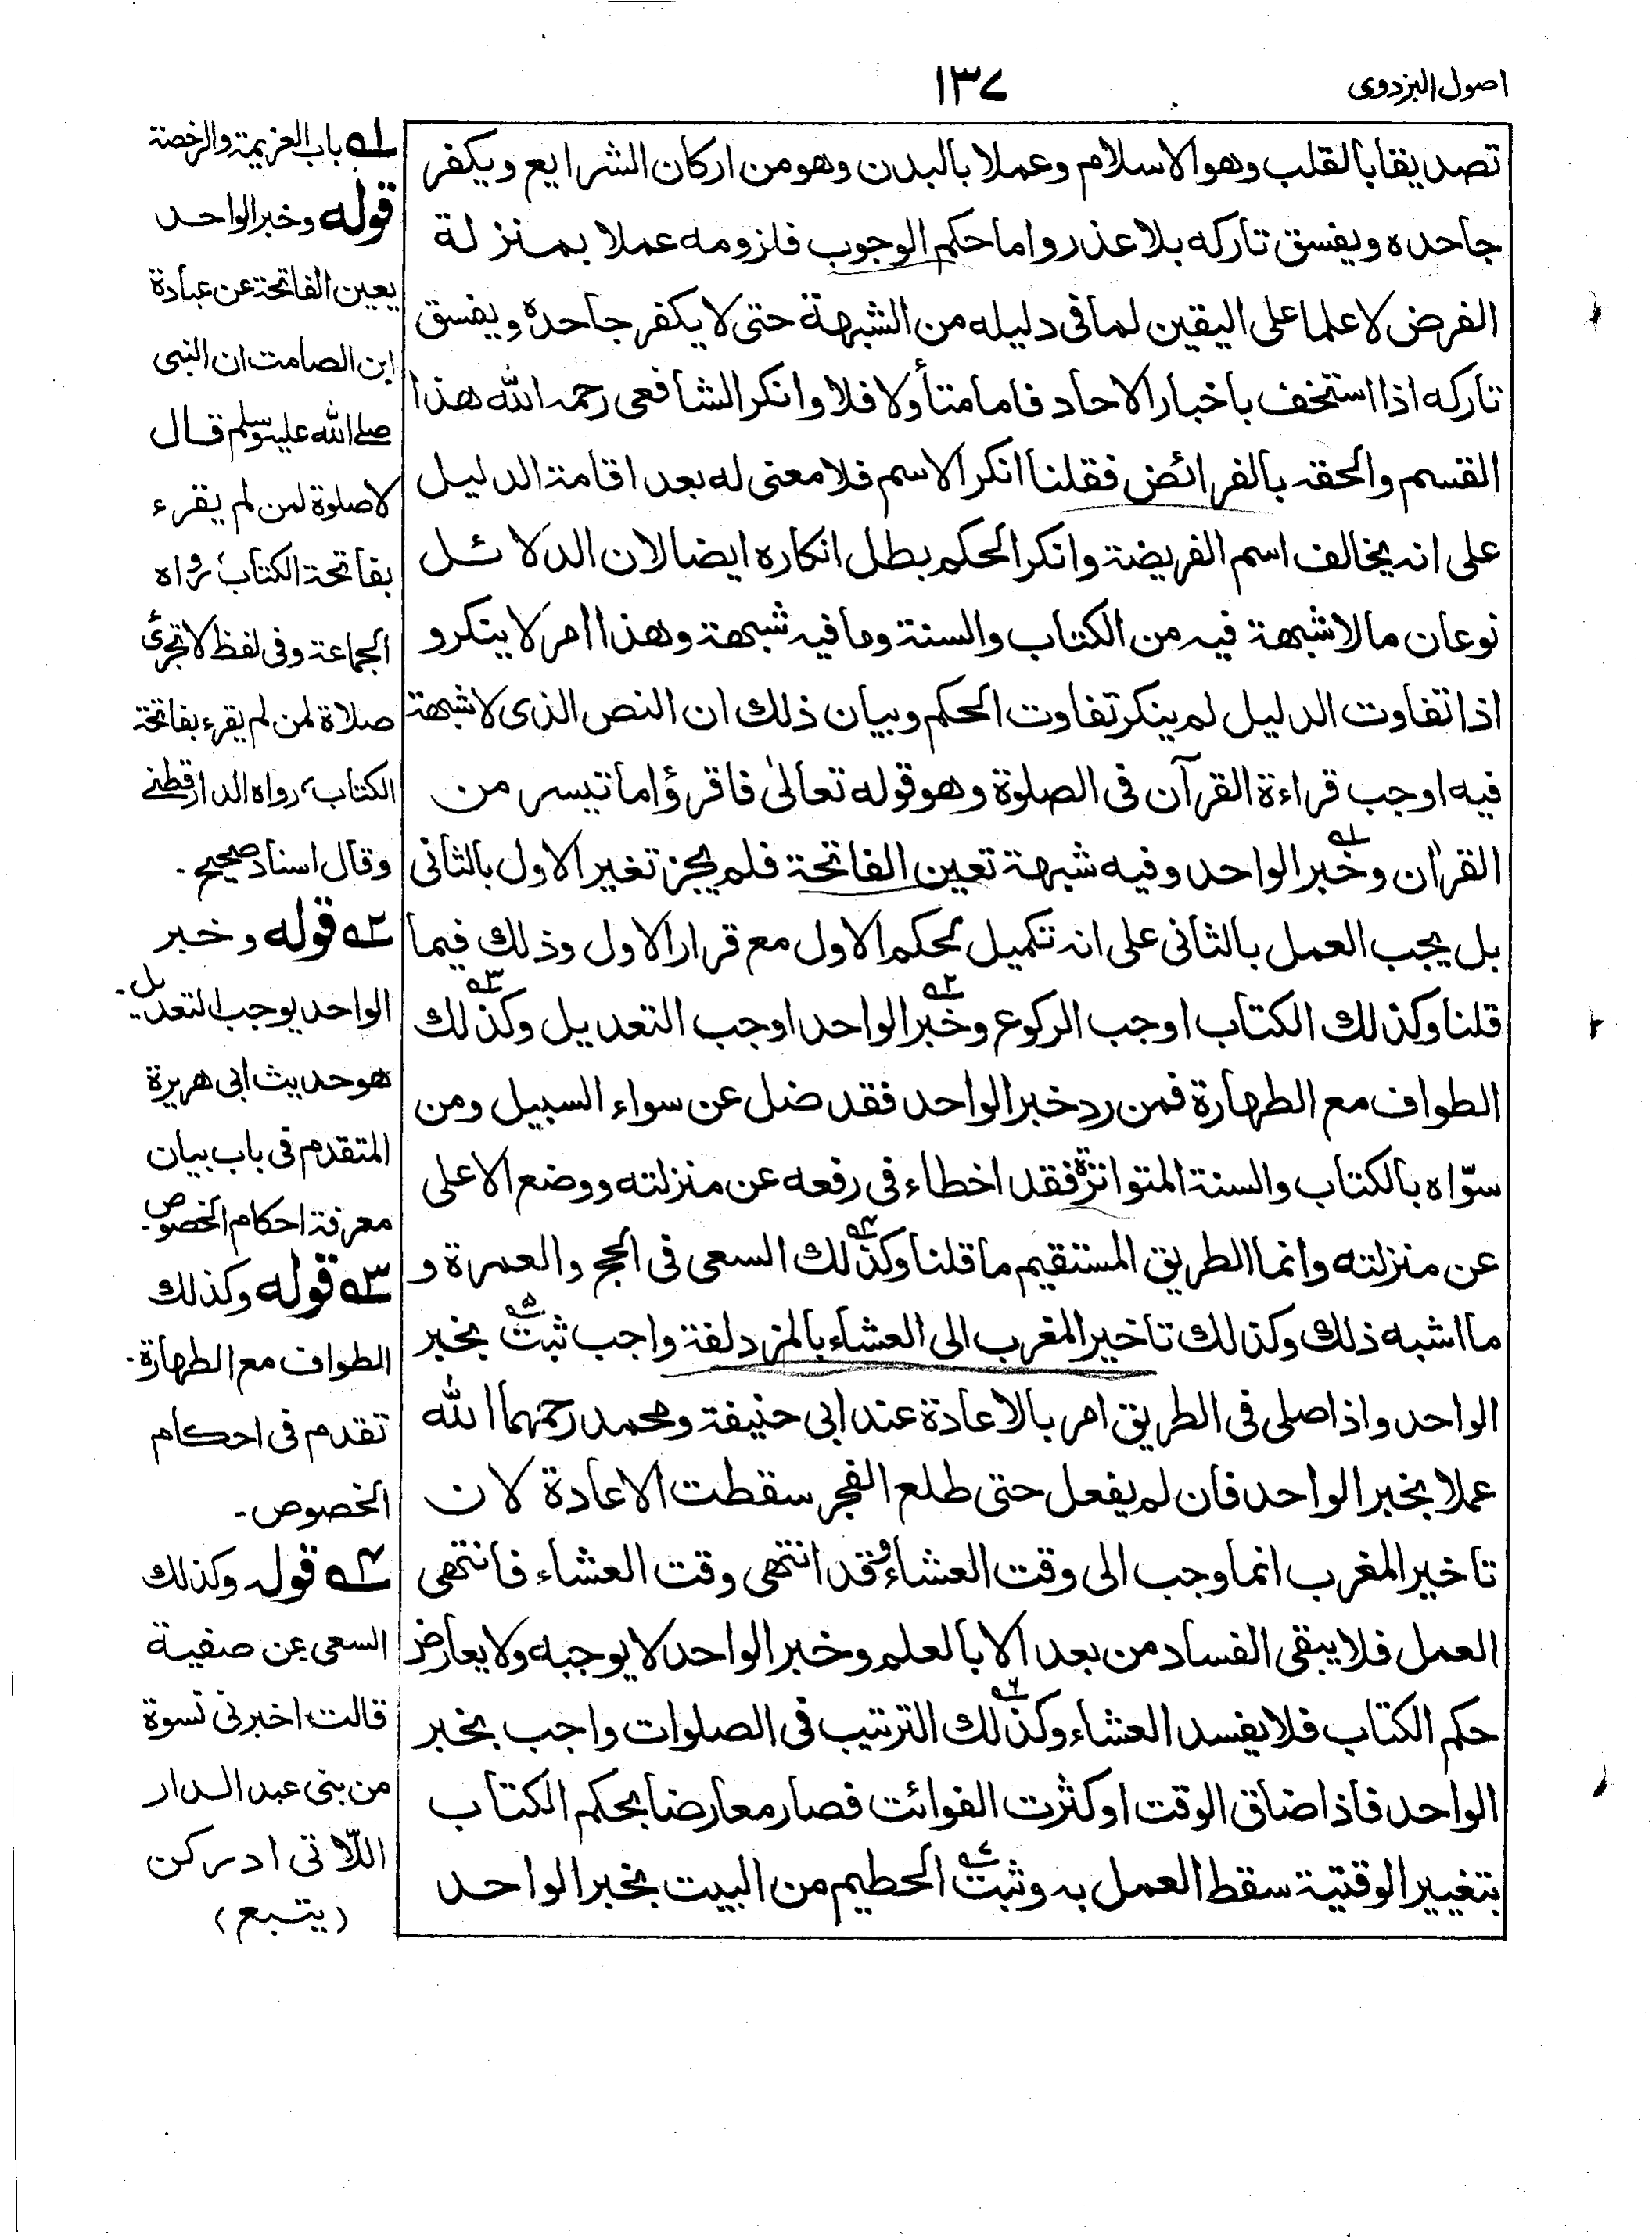 اصول البزدوى
١٣٧
تصديقا بالقلب وهو الاسلام وعملا بالبدن وهو من اركان الشرايع ويكفر
جاحده ويفسق تاركه بلا عذر واما حكم الوجوب فلزومه عملا بمنزلة
الفرض لا علما على اليقين لما فى دليله من الشبهة حتى لا يكفر جاحده ويفسق
تاركه اذا استخف باخبار الاحاد فاما متأولا فلا وانكر الشافعى رحمه الله هذا
القسم والحقه بالفرائض فقلنا انكر الاسم فلا معنى له بعد اقامة الدليل
على انه يخالف اسم الفريضة وانكر الحكم بطل انكاره ايضا لان الدلائل
نوعان ما لا شبهة فيه من الكتاب والسنة وما فيه شبهة وهذا امر لا ينكر و
اذا تفاوت الدليل لم ينكر تفاوت الحكم وبيان ذلك ان النص الذى لا شبهة
فيه اوجب قراءة القرآن فى الصلوة وهو قوله تعالىٰ فاقرؤا ما تيسر من
القرٰان وخبر الواحد وفيه شبهة تعين الفاتحة فلم يجز تغير الاول بالثانى
بل يجب العمل بالثانى على انه تكميل لحكم الاول مع قرار الاول وذلك فيما
قلنا وكذلك الكتاب اوجب الركوع وخبر الواحد اوجب التعديل وكذلك
الطواف مع الطهارة فمن رد خبر الواحد فقد ضل عن سواء السبيل ومن
سوّاه بالكتاب والسنة المتواترة فقد اخطاء فى رفعه عن منزلته ووضع الاعلى
عن منزلته وانما الطريق المستقيم ما قلنا وكذلك السعى فى الحج والعمرة و
ما اشبه ذلك وكذلك تاخير المغرب الى العشاء بالمزدلفة واجب ثبت بخبر
الواحد واذا صلى فى الطريق امر بالاعادة عند ابى حنيفة ومحمد رحمهما الله
عملا بخبر الواحد فان لم يفعل حتى طلع الفجر سقطت الاعادة لان
تاخير المغرب انما وجب الى وقت العشاء وقد انتهى وقت العشاء فانتهى
العمل فلا يبقى الفساد من بعد الا بالعلم وخبر الواحد لا يوجبه ولا يعارض
حكم الكتاب فلا يفسد العشاء وكذلك الترتيب فى الصلوات واجب بخبر
الواحد فاذا ضاق الوقت او كثرت الفوائت فصار معارضا بحكم الكتاب
بتغيير الوقتية سقط العمل به وثبت الحطيم من البيت بخبر الواحد
١ـه باب العزيمة والرخصة
قوله وخبر الواحد
يعين الفاتحة عن عبادة
ابن الصامت ان النبى
صلے الله عليه وسلم قال
لا صلوة لمن لم يقرء
بفاتحة الكتاب، رواه
الجماعة وفى لفظ لا تجزئ
صلاة لمن لم يقرء بفاتحة
الكتاب، رواه الدارقطنے
وقال اسناد صحيح۔
٢ـه قوله وخبر
الواحد يوجب التعديل۔
هو حديث ابى هريرة
المتقدم فى باب بيان
معرفة احكام الخصوص۔
٣ـه قوله وكذلك
الطواف مع الطهارة۔
تقدم فى احكام
الخصوص۔
٤ـه قوله وكذلك
السعى عن صفية
قالت اخبرنى نسوة
من بنى عبد الدار
اللّاتى ادركن
(يتبع)